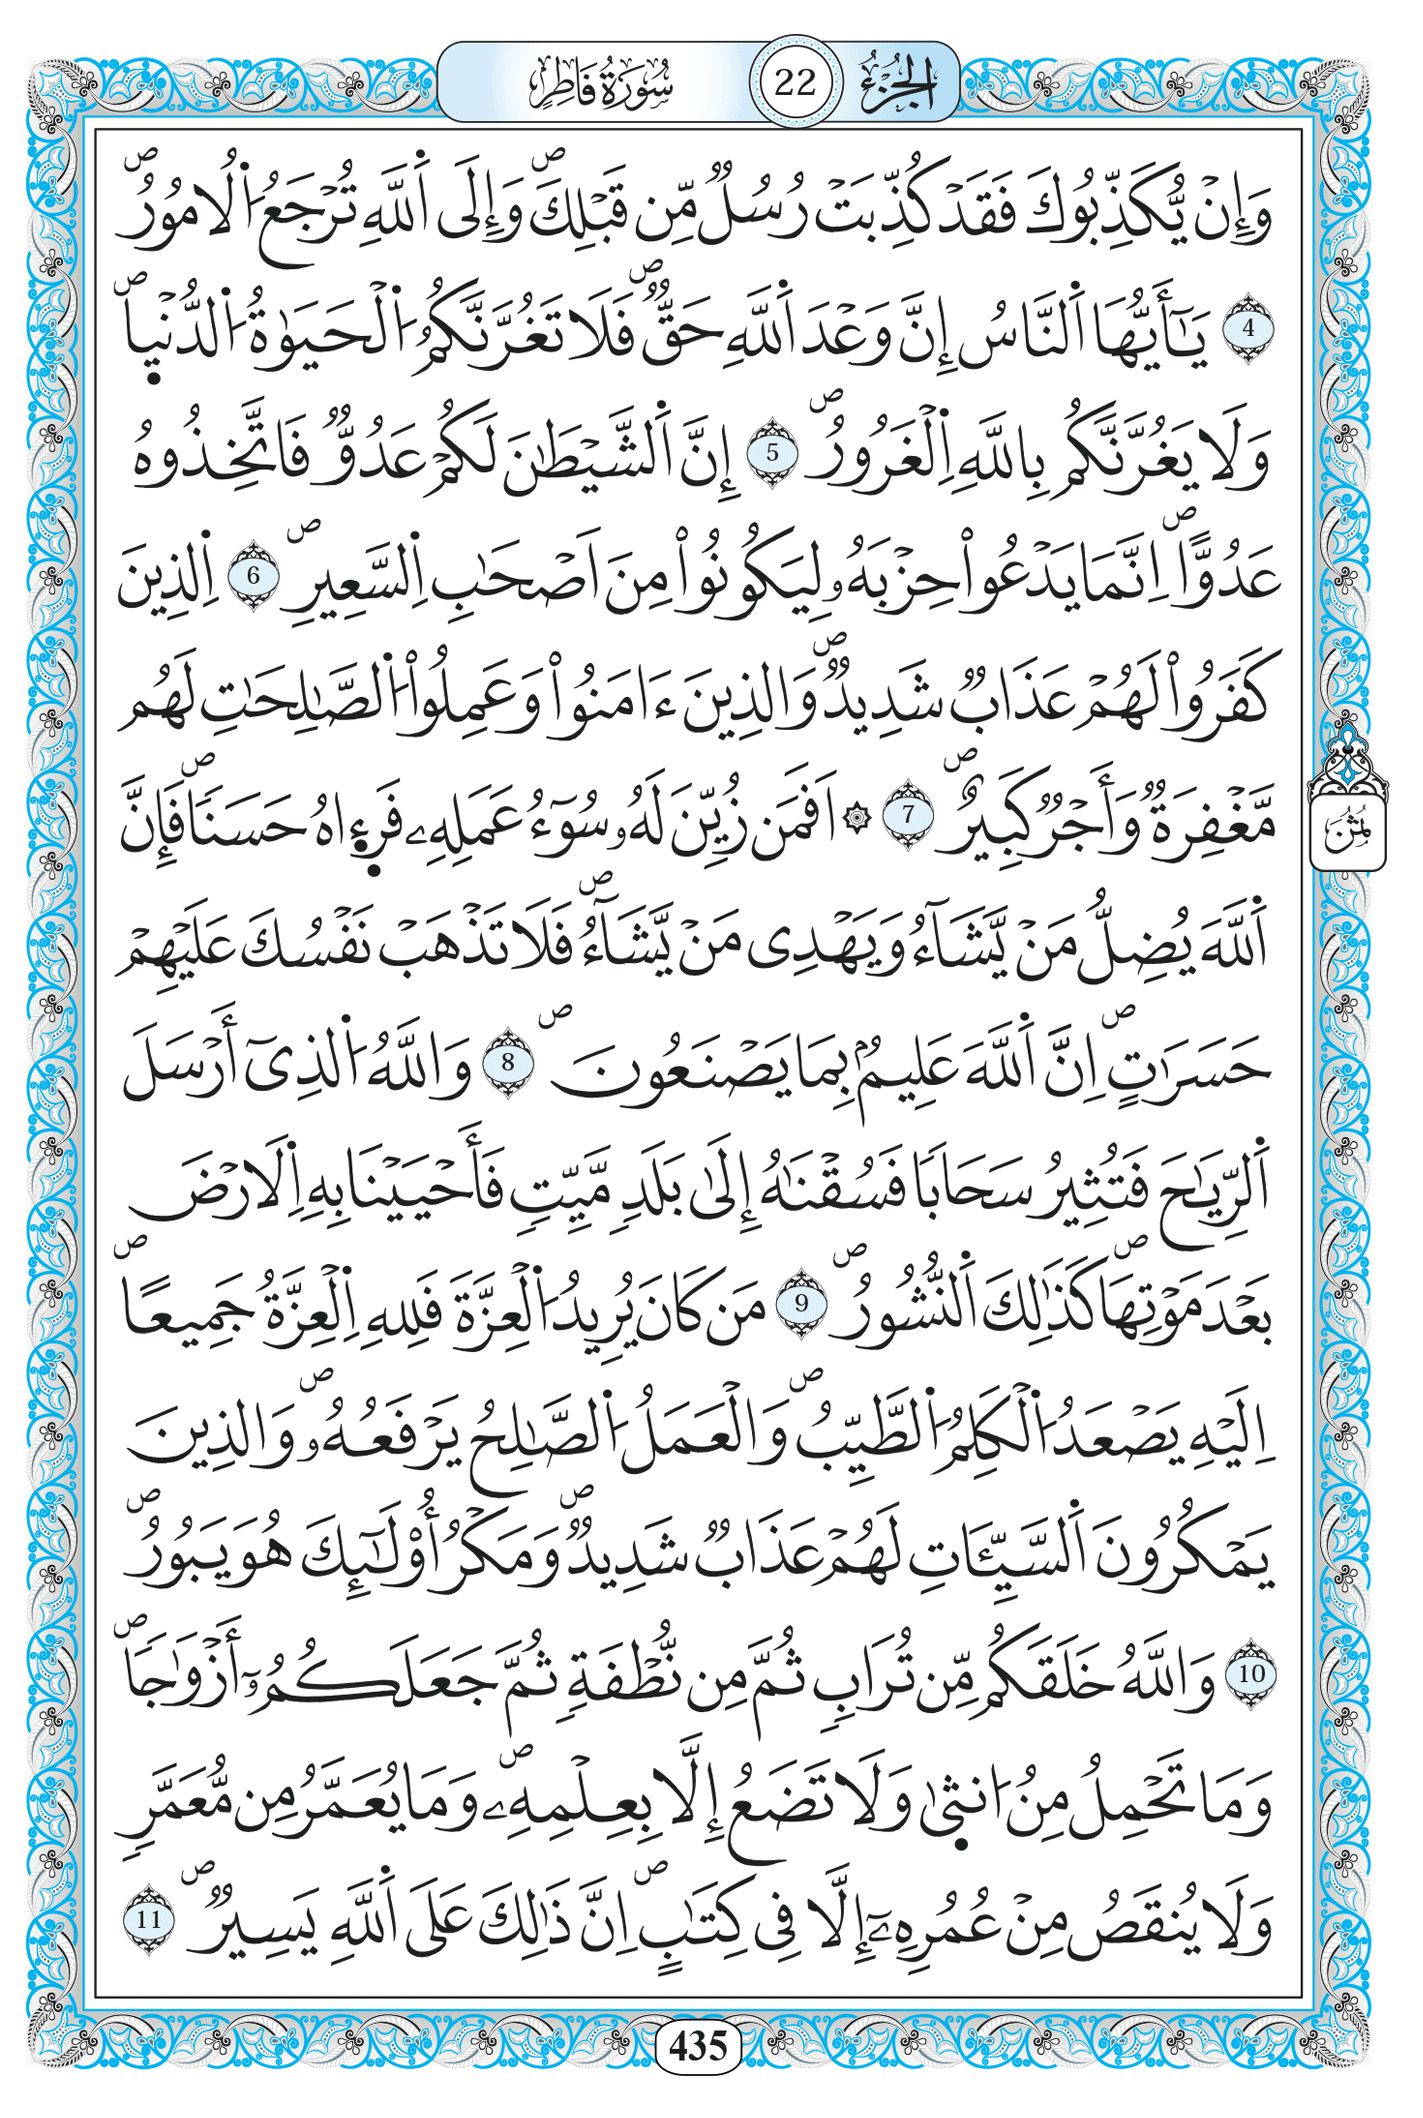 الجزء 22 سورة فاطر
وَإِنْ يُّكَذِّبُوكَ فَقَدْ كُذِّبَتْ رُسُلٌ مِّن قَبْلِكَۖ وَإِلَى اَ۬للَّهِ تُرْجَعُ اُ۬لُامُورُۖ
4 يَٰٓأَيُّهَا اَ۬لنَّاسُ إِنَّ وَعْدَ اَ۬للَّهِ حَقٌّۖ فَلَا تَغُرَّنَّكُمُ اُ۬لْحَيَوٰةُ اُ۬لدُّنْي۪اۖ
وَلَا يَغُرَّنَّكُم بِاللَّهِ اِ۬لْغَرُورُۖ 5 إِنَّ اَ۬لشَّيْطَٰنَ لَكُمْ عَدُوٌّ فَاتَّخِذُوهُ
عَدُوّاًۖ اِنَّمَا يَدْعُواْ حِزْبَهُۥ لِيَكُونُواْ مِنَ اَصْحَٰبِ اِ۬لسَّعِيرِۖ 6 اِ۬لذِينَ
كَفَرُواْ لَهُمْ عَذَابٌ شَدِيدٌۖ وَالذِينَ ءَامَنُواْ وَعَمِلُواْ اُ۬لصَّٰلِحَٰتِ لَهُم
مَّغْفِرَةٌ وَأَجْرٌ كَبِيرٌۖ 7 ۞ اَفَمَن زُيِّنَ لَهُۥ سُوٓءُ عَمَلِهِۦ فَر۪ء۪اهُ حَسَناٗۖ فَإِنَّ
اَ۬للَّهَ يُضِلُّ مَنْ يَّشَآءُ وَيَهْدِى مَنْ يَّشَآءُۖ فَلَا تَذْهَبْ نَفْسُكَ عَلَيْهِمْ
حَسَرَٰتٍۖ اِنَّ اَ۬للَّهَ عَلِيمُۢ بِمَا يَصْنَعُونَۖ 8 وَاللَّهُ اُ۬لذِىٓ أَرْسَلَ
اَ۬لرِّيَٰحَ فَتُثِيرُ سَحَاباٗ فَسُقْنَٰهُ إِلَىٰ بَلَدٖ مَّيِّتٖ فَأَحْيَيْنَا بِهِ اِ۬لَارْضَ
بَعْدَ مَوْتِهَاۖ كَذَٰلِكَ اَ۬لنُّشُورُۖ 9 مَن كَانَ يُرِيدُ اُ۬لْعِزَّةَ فَلِلهِ اِ۬لْعِزَّةُ جَمِيعاًۖ
اِلَيْهِ يَصْعَدُ اُ۬لْكَلِمُ اُ۬لطَّيِّبُۖ وَالْعَمَلُ اُ۬لصَّٰلِحُ يَرْفَعُهُۥۖ وَالذِينَ
يَمْكُرُونَ اَ۬لسَّيِّـَٔاتِ لَهُمْ عَذَابٌ شَدِيدٌۖ وَمَكْرُ أُوْلَٰٓئِكَ هُوَ يَبُورُۖ
10 وَاللَّهُ خَلَقَكُم مِّن تُرَابٖ ثُمَّ مِن نُّطْفَةٖ ثُمَّ جَعَلَكُمُۥٓ أَزْوَٰجاٗۖ
وَمَا تَحْمِلُ مِنُ انث۪ىٰ وَلَا تَضَعُ إِلَّا بِعِلْمِهِۦۖ وَمَا يُعَمَّرُ مِن مُّعَمَّرٖ
وَلَا يُنقَصُ مِنْ عُمُرِهِۦٓ إِلَّا فِى كِتَٰبٍۖ اِنَّ ذَٰلِكَ عَلَى اَ۬للَّهِ يَسِيرٌۖ 11
ثمن
435